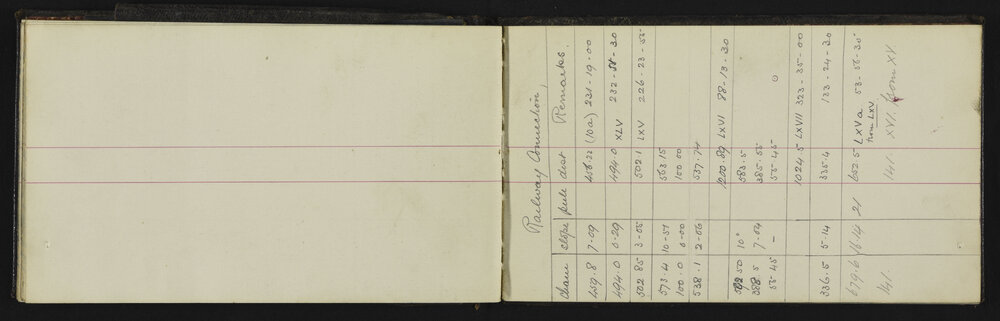 Railway Connection,
chain slope pole dist Remarks.
459.8 7-09 456.22 (10a) 231-19-00
494.0 0-29 494.0 XLV 232-51-30
502.85 3-05 502.1 LXV 226-23-55
573.4 10-51 563.15
100.0 0-00 100.00
538.1 2-06 537.74
1200.89 LXVI 88-13-30
592.50 10° 583.5
388.5 7.04 385.55
55.45 - 55.45
1024.5 LXVII 323-35-00
336.5 5-14 335.4 133-24-30
679.6 16.14 21 652.5 LXVa 53-56-30
from LXV
141. 141. XVI from XV